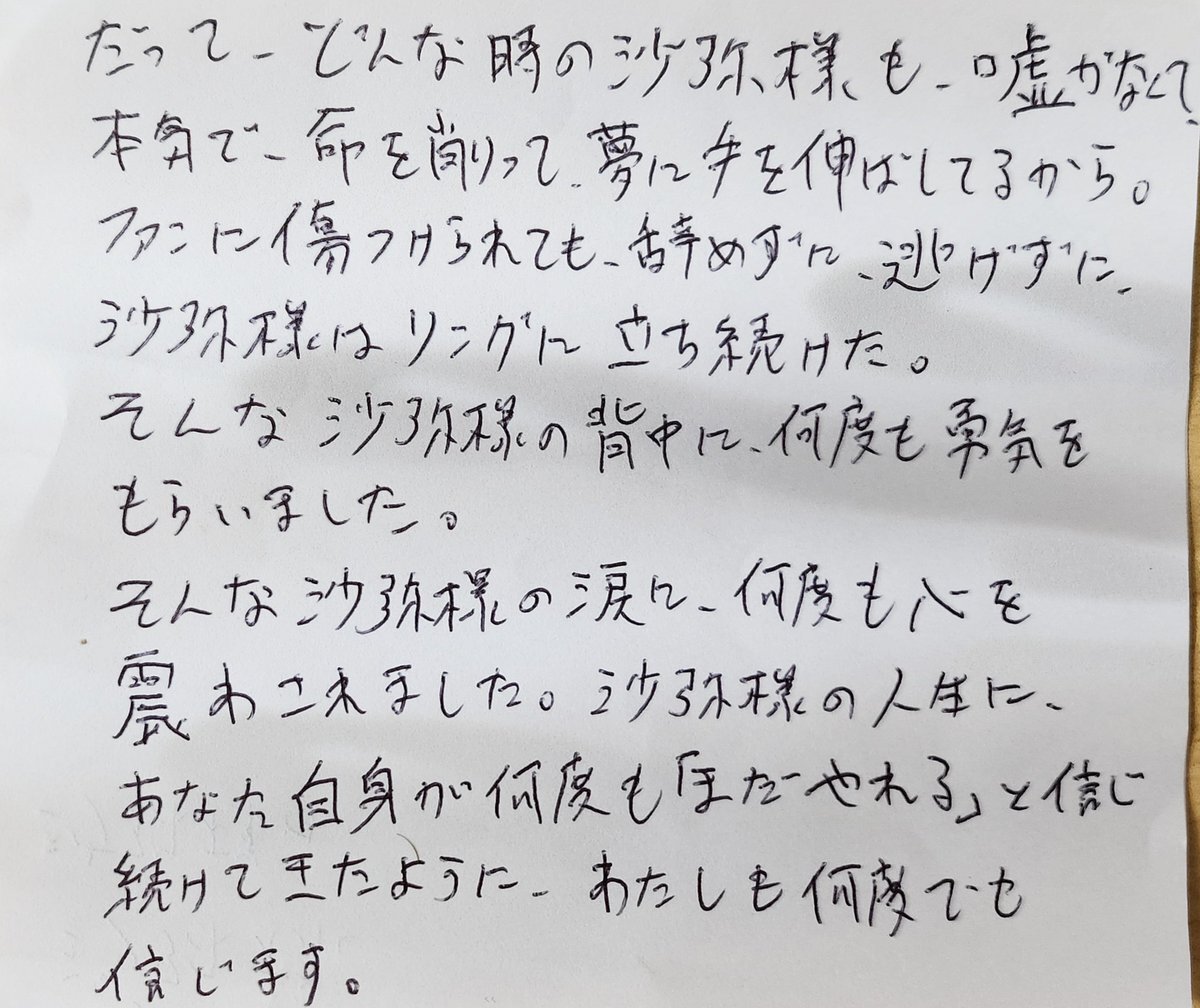 だって、どんな時の沙弥様も、嘘がなくて、
本気で、命を削って、夢に手を伸ばしてるから。
ファンに傷つけられても、辞めずに、逃げずに、
沙弥様はリングに立ち続けた。
そんな沙弥様の背中に、何度も勇気を
もらいました。
そんな沙弥様の涙に、何度も心を
震わされました。沙弥様の人生に、
あなた自身が何度も「まだやれる」と信じ
続けてきたように、わたしも何度でも
信じます。